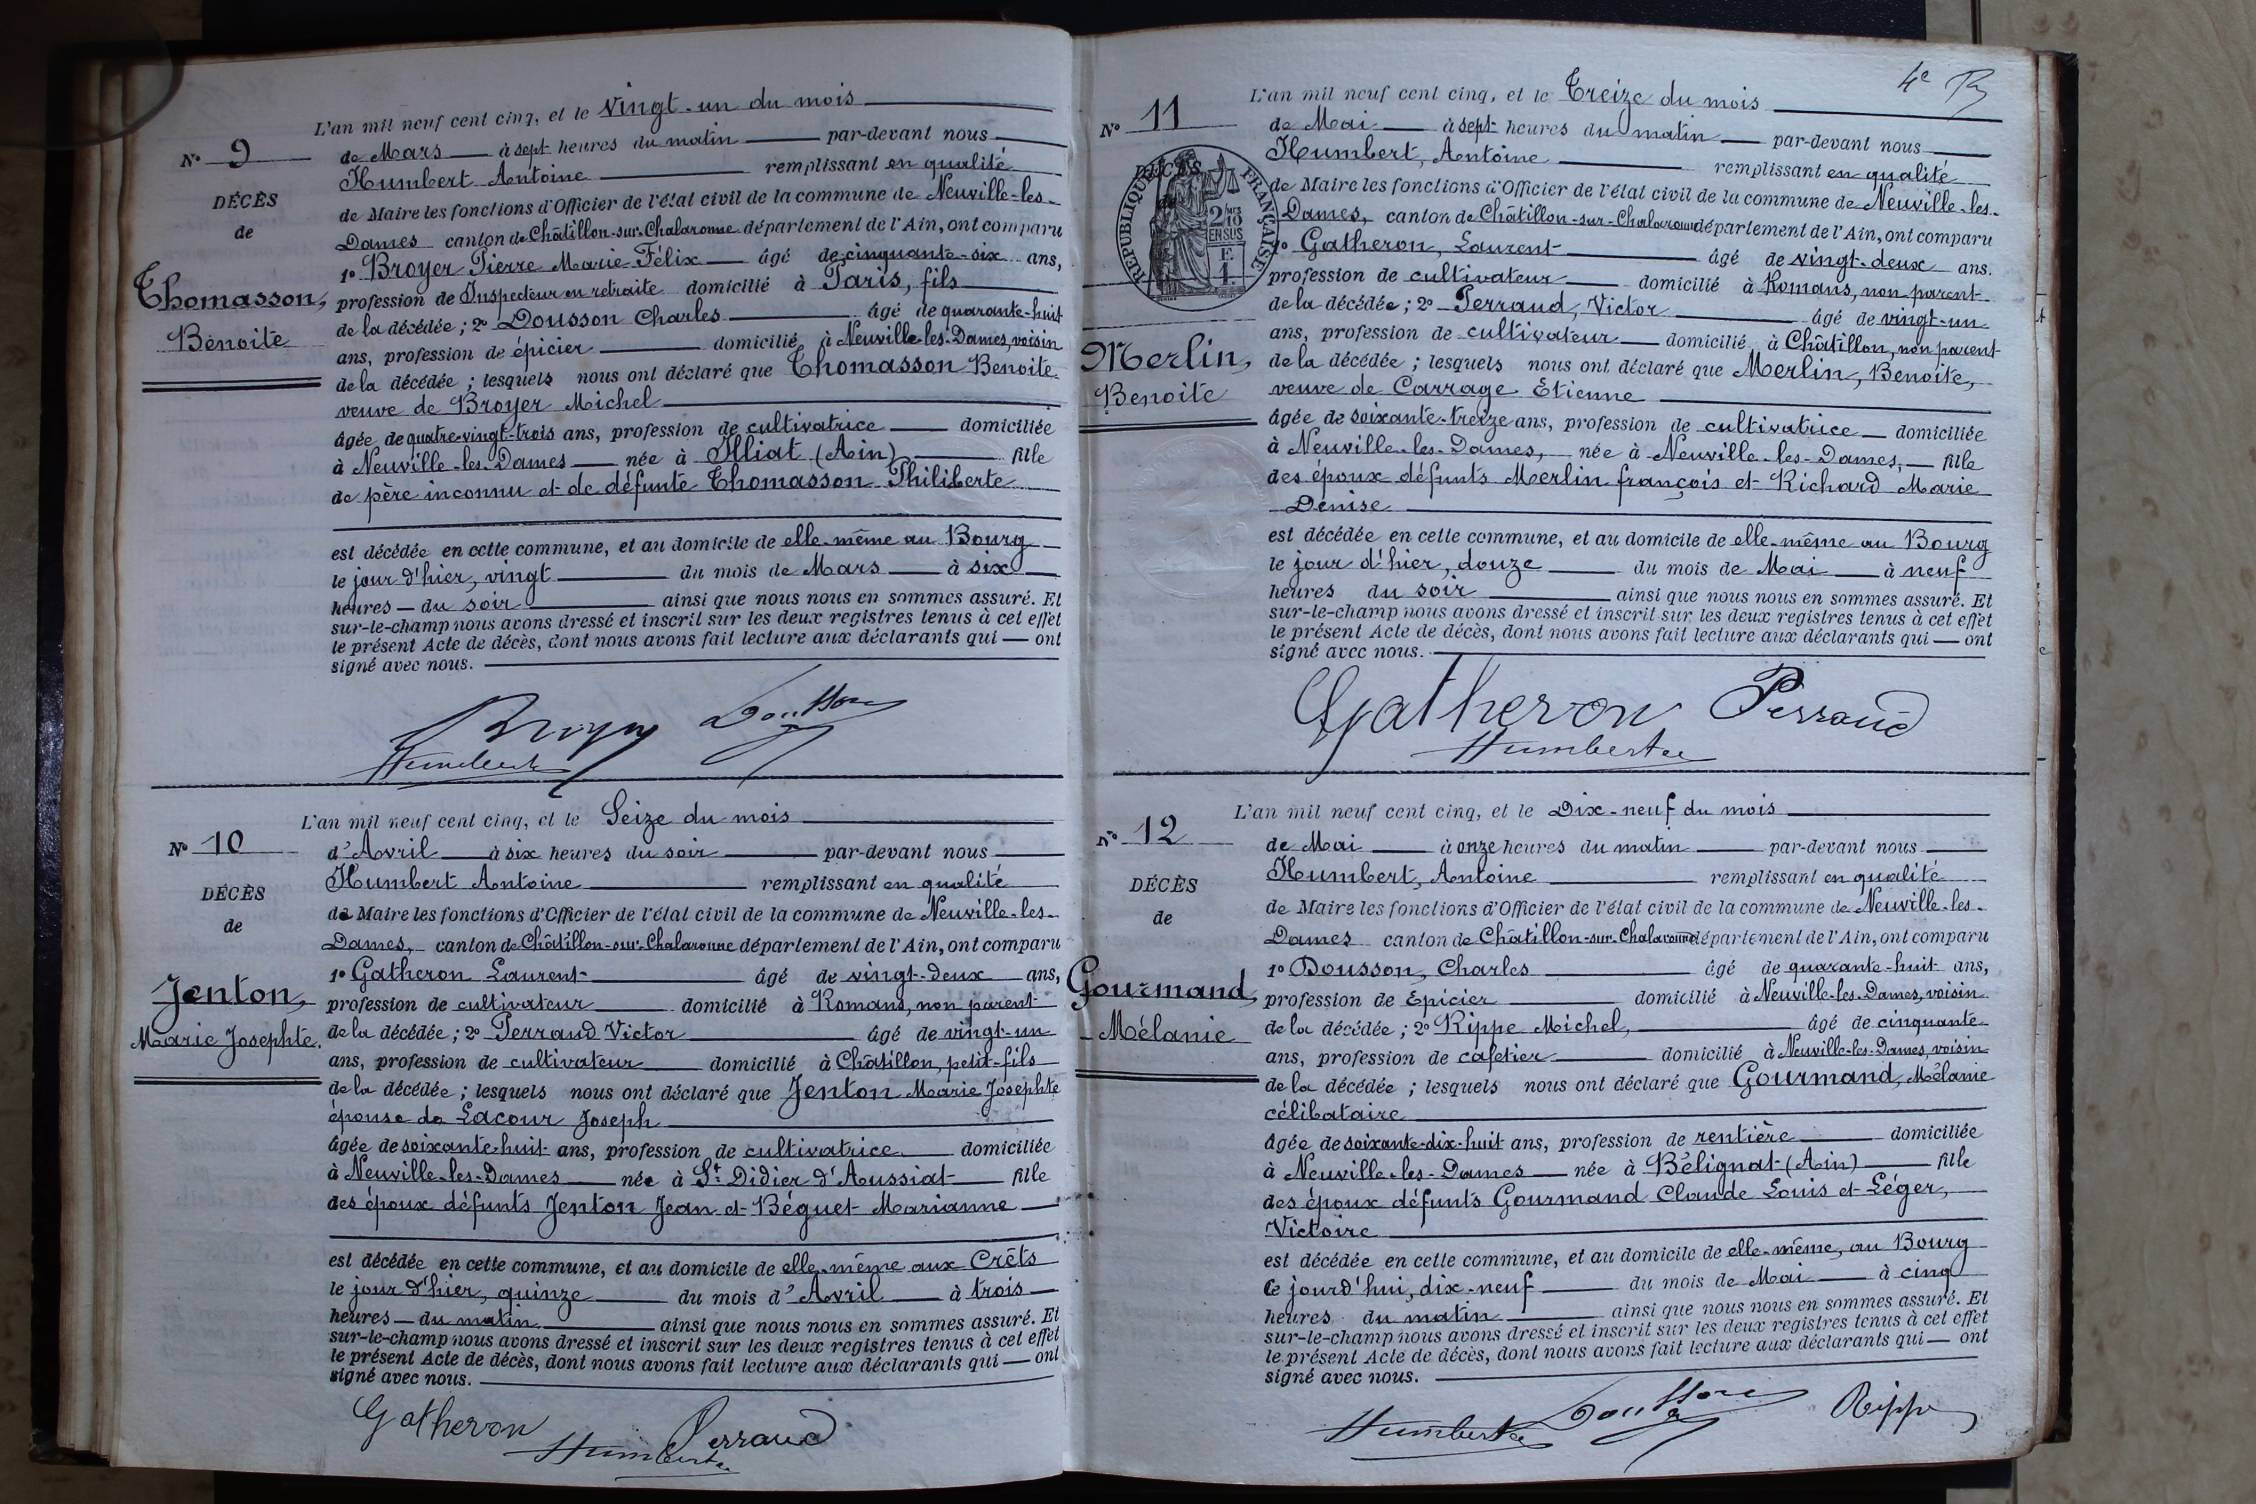 L'an mil neuf cent cinq, et le Vingt-un du mois
N° 9
de Mars à sept heures du matin par-devant nous
Humbert Antoine remplissant en qualité
DÉCÈS
de Maire les fonctions d'Officier de l'état civil de la commune de Neuville-les-
de
Dames canton de Châtillon-sur-Chalaronne département de l'Ain, ont comparu
1° Broyer Pierre Marie Félix âgé de cinquante-six ans,
Thomasson,
profession de Inspecteur en retraite domicilié à Paris, fils
Benoite
de la décédée ; 2° Dousson Charles âgé de quarante-huit
ans, profession de épicier domicilié à Neuville-les-Dames, voisin
de la décédée ; lesquels nous ont déclaré que Thomasson Benoite
veuve de Broyer Michel
âgée de quatre-vingt-trois ans, profession de cultivatrice domiciliée
à Neuville-les-Dames née à Illiat (Ain) fille
de père inconnu et de défunte Thomasson Philiberte
est décédée en cette commune, et au domicile de elle-même au Bourg
le jour d'hier, vingt du mois de Mars à six
heures du soir ainsi que nous nous en sommes assuré. Et
sur-le-champ nous avons dressé et inscrit sur les deux registres tenus à cet effet
le présent Acte de décès, dont nous avons fait lecture aux déclarants qui ont
signé avec nous.
Broyer Dousson
Humbert
L'an mil neuf cent cinq, et le Seize du mois
N° 10
d'Avril à six heures du soir par-devant nous
Humbert Antoine remplissant en qualité
DÉCÈS
de Maire les fonctions d'Officier de l'état civil de la commune de Neuville-les-
de
Dames, canton de Châtillon-sur-Chalaronne département de l'Ain, ont comparu
1° Gatheron Laurent âgé de vingt-deux ans,
Jenton,
profession de cultivateur domicilié à Romans, non parent
Marie Josephte.
de la décédée ; 2° Perraud Victor âgé de vingt-un
ans, profession de cultivateur domicilié à Châtillon, petit-fils
de la décédée ; lesquels nous ont déclaré que Jenton Marie Josephte
épouse de Lacour Joseph
âgée de soixante-huit ans, profession de cultivatrice domiciliée
à Neuville-les-Dames née à St Didier d'Aussiat fille
des époux défunts Jenton Jean et Béguet Marianne
est décédée en cette commune, et au domicile de elle-même aux Crêts
le jour d'hier, quinze du mois d'Avril à trois
heures du matin ainsi que nous nous en sommes assuré. Et
sur-le-champ nous avons dressé et inscrit sur les deux registres tenus à cet effet
le présent Acte de décès, dont nous avons fait lecture aux déclarants qui ont
signé avec nous.
Gatheron Perraud
Humbert
4e
L'an mil neuf cent cinq, et le Treize du mois
N° 11
de Mai à sept heures du matin par-devant nous
Humbert, Antoine remplissant en qualité
DÉCÈS
de
RÉPUBLIQUE FRANÇAISE
2/10
EN SUS
E
4
de Maire les fonctions d'Officier de l'état civil de la commune de Neuville-les-
Dames, canton de Châtillon-sur-Chalaronne département de l'Ain, ont comparu
1° Gatheron, Laurent âgé de vingt-deux ans.
profession de cultivateur domicilié à Romans, non parent
de la décédée ; 2° Perraud, Victor âgé de vingt-un
ans, profession de cultivateur domicilié à Châtillon, non parent
Merlin,
de la décédée ; lesquels nous ont déclaré que Merlin, Benoite,
Benoite
veuve de Carrage Etienne
âgée de soixante-treize ans, profession de cultivatrice domiciliée
à Neuville-les-Dames, née à Neuville-les-Dames, fille
des époux défunts Merlin françois et Richard Marie
Denise
est décédée en cette commune, et au domicile de elle-même au Bourg
le jour d'hier, douze du mois de Mai à neuf
heures du soir ainsi que nous nous en sommes assuré. Et
sur-le-champ nous avons dressé et inscrit sur les deux registres tenus à cet effet
le présent Acte de décès, dont nous avons fait lecture aux déclarants qui ont
signé avec nous.
Gatheron Perraud
Humbert
L'an mil neuf cent cinq, et le Dix-neuf du mois
N° 12
de Mai à onze heures du matin par-devant nous
Humbert, Antoine remplissant en qualité
DÉCÈS
de Maire les fonctions d'Officier de l'état civil de la commune de Neuville-les-
de
Dames canton de Châtillon-sur-Chalaronne département de l'Ain, ont comparu
1° Dousson, Charles âgé de quarante-huit ans,
Gourmand,
profession de Épicier domicilié à Neuville-les-Dames, voisin
Mélanie
de la décédée ; 2° Rippe Michel, âgé de cinquante
ans, profession de cafetier domicilié à Neuville-les-Dames, voisin
de la décédée ; lesquels nous ont déclaré que Gourmand, Mélanie
célibataire
âgée de soixante-dix-huit ans, profession de rentière domiciliée
à Neuville-les-Dames née à Bélignat (Ain) fille
des époux défunts Gourmand Claude Louis et Léger,
Victoire
est décédée en cette commune, et au domicile de elle-même, au Bourg
Ce jourd'hui, dix-neuf du mois de Mai à cinq
heures du matin ainsi que nous nous en sommes assuré. Et
sur-le-champ nous avons dressé et inscrit sur les deux registres tenus à cet effet
le présent Acte de décès, dont nous avons fait lecture aux déclarants qui ont
signé avec nous.
Humbert Dousson Rippe